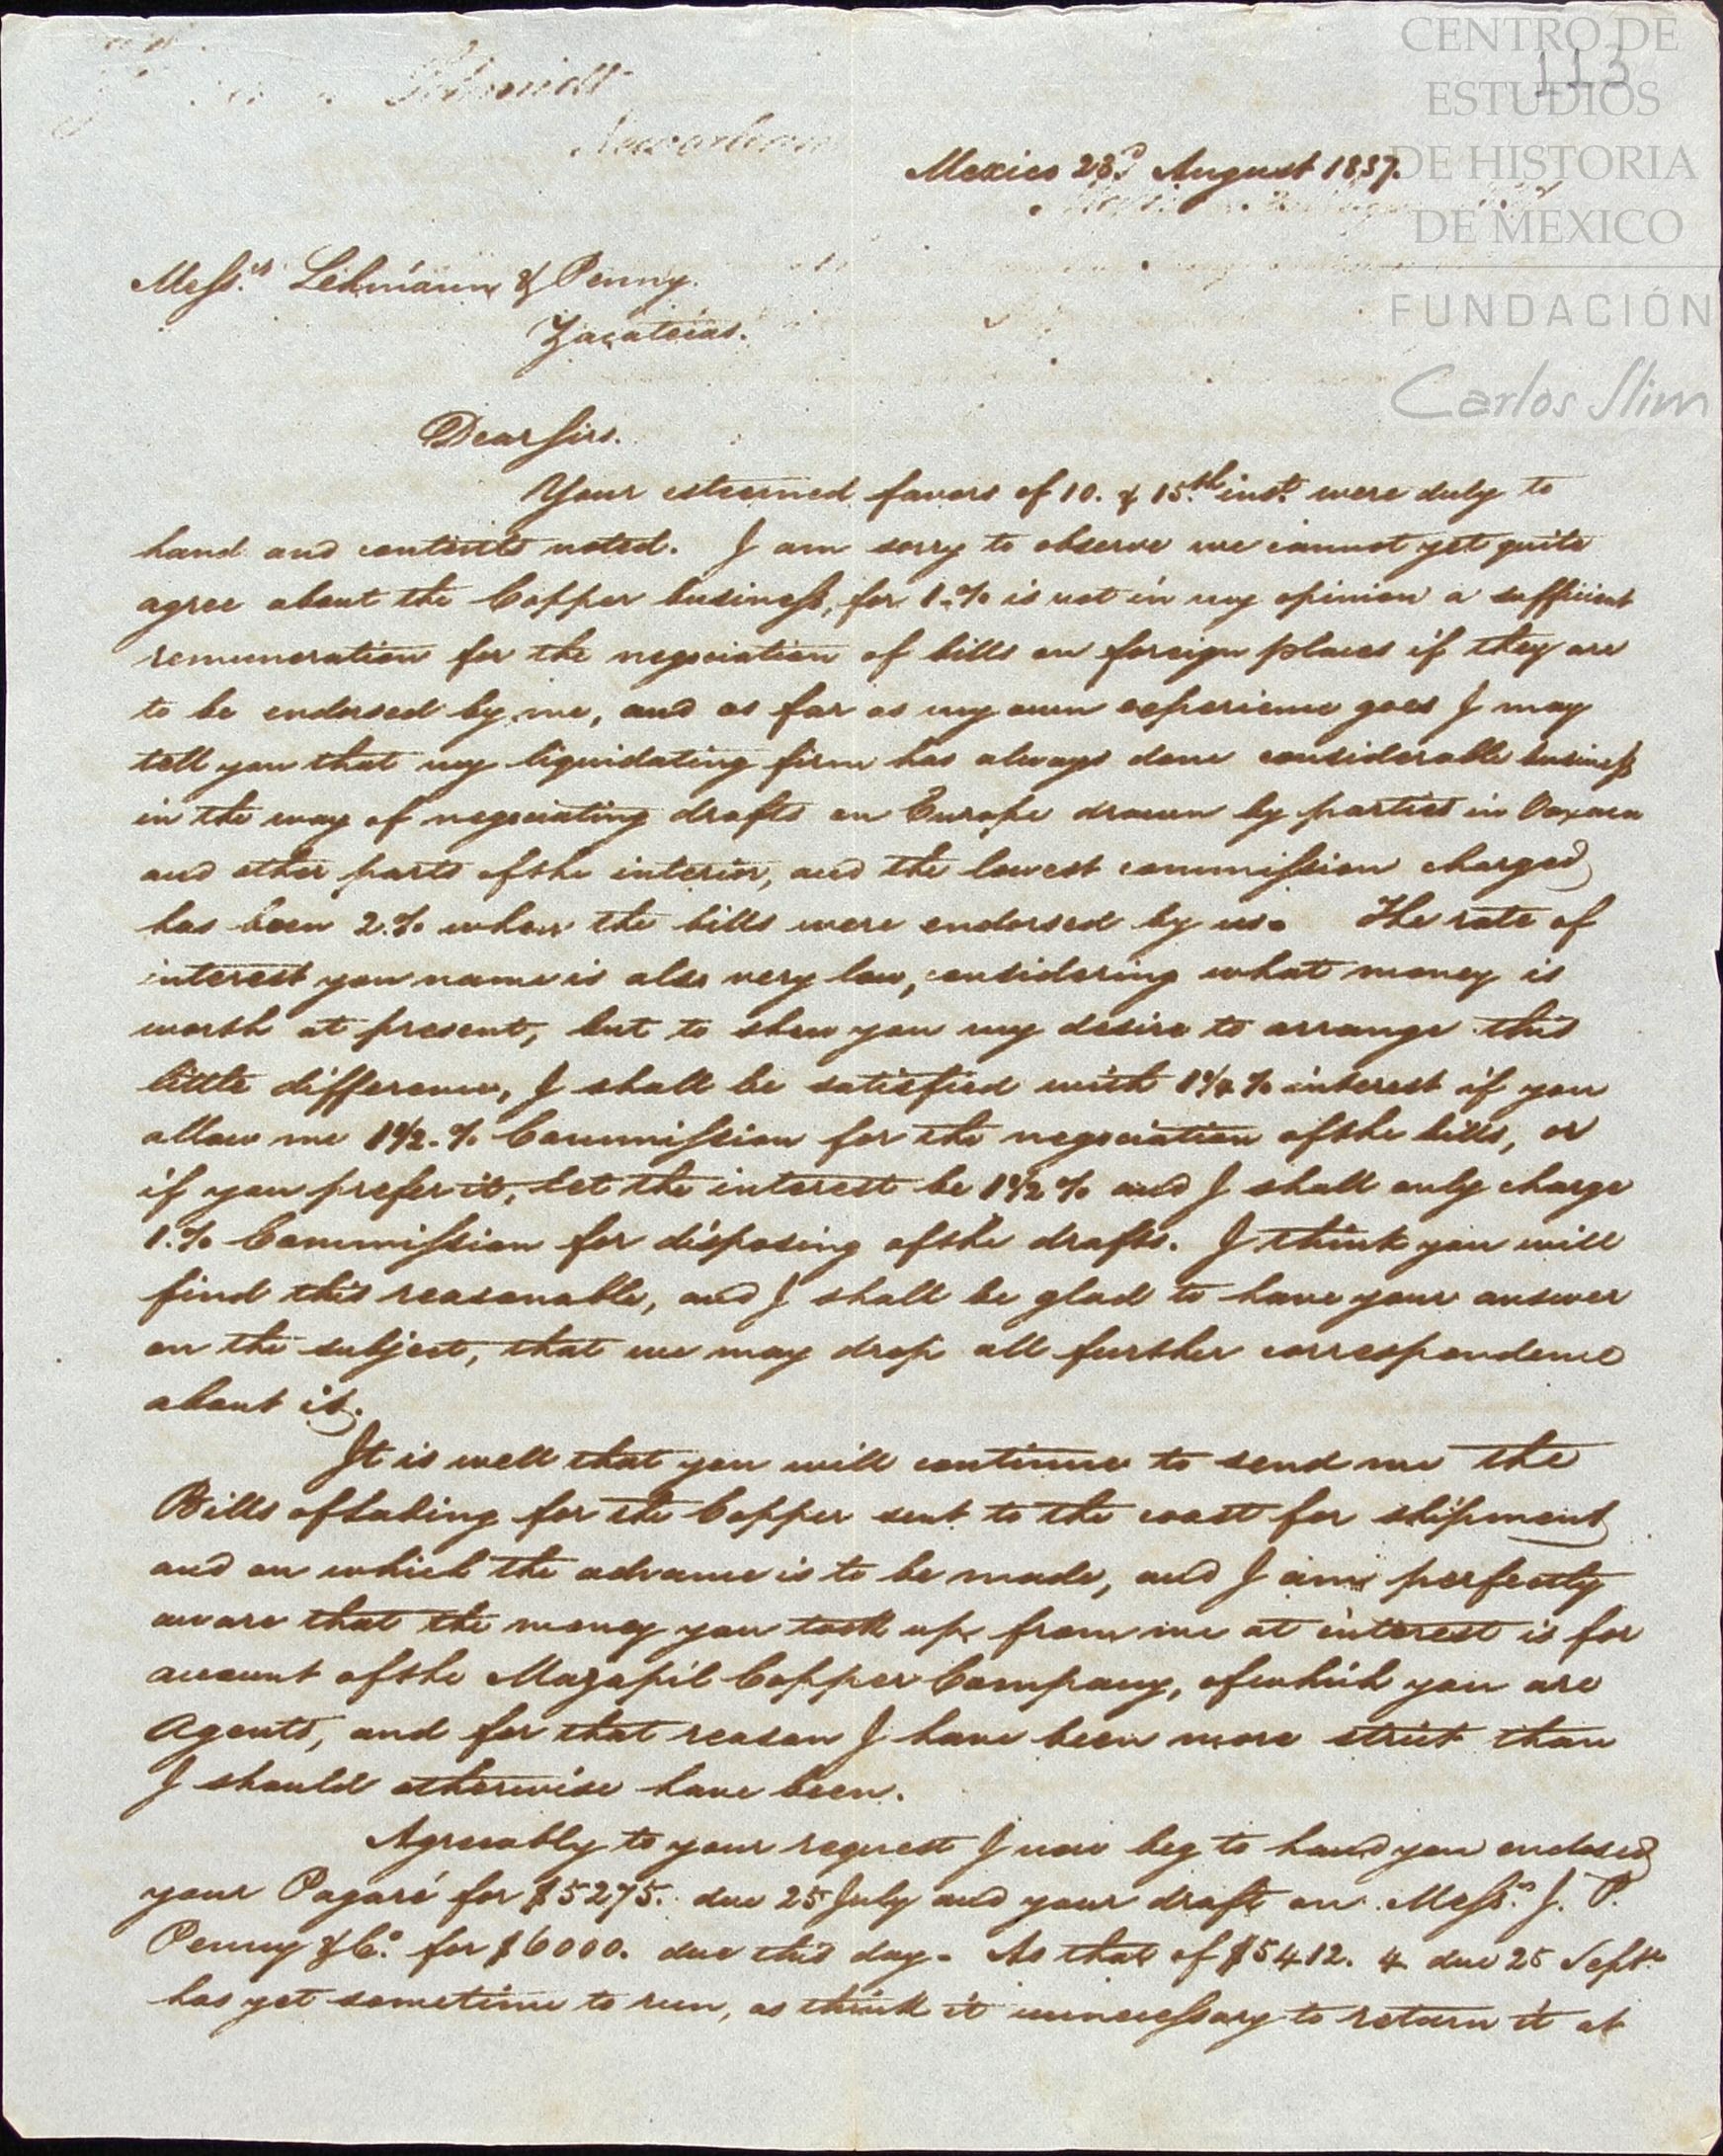 CENTRO DE
ESTUDIOS
DE HISTORIA
DE MEXICO
FUNDACIÓN
Carlos Slim
113
Schmidt
Mexico 23d August 1837.
Messrs. Lehmann & Penny.
Zacatecas.
Dear Sirs.
Your esteemed favors of 10. & 15th inst. were duly to
hand and contents noted. I am sorry to observe we cannot yet quite
agree about the Copper business, for 1.% is not in my opinion a sufficient
remuneration for the negociation of bills on foreign places if they are
to be endorsed by me, and as far as my own experience goes I may
tell you that my liquidating firm has always done considerable business
in the way of negociating drafts on Europe drawn by parties in Oaxaca
and other parts of the interior, and the lowest commission charged
has been 2.% when the bills were endorsed by us. The rate of
interest you name is also very low, considering what money is
worth at present, but to shew you my desire to arrange this
little difference, I shall be satisfied with 1 1/4 % interest if you
allow me 1 1/2. % Commission for the negociation of the bills, or
if you prefer it, let the interest be 1 1/2 % and I shall only charge
1.% Commission for disposing of the drafts. I think you will
find this reasonable, and I shall be glad to have your answer
on the subject, that we may drop all further correspondence
about it.
It is well that you will continue to send me the
Bills of lading for the Copper sent to the coast for shipment
and on which the advance is to be made, and I am perfectly
aware that the money you took up from me at interest is for
account of the Mazapil Copper Company, of which you are
Agents, and for that reason I have been more strict than
I should otherwise have been.
Agreeably to your request I now beg to hand you enclosed
your Pagaré for $5275. due 25 July and your draft on Messrs. J. P.
Penny & Co. for $6000. due this day. As that of $5412. 4 due 25 Septr.
has yet sometime to run, as think it unnecessary to return it at